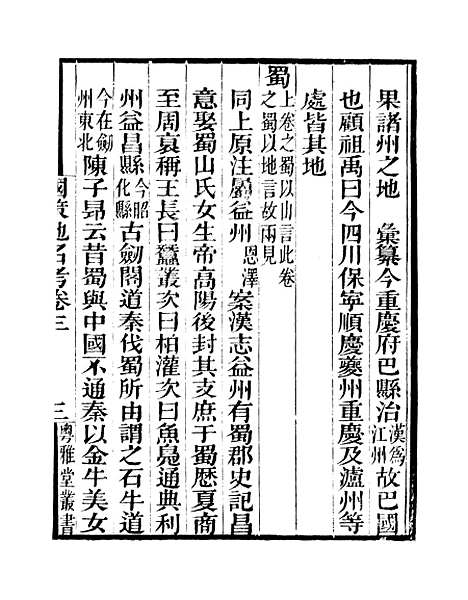 果諸州之地　彙纂今重慶府巴縣治漢爲江州故巴國
也顧祖禹曰今四川保寧順慶夔州重慶及瀘州等
處皆其地
蜀上卷之蜀以山言此卷之蜀以地言故兩見
同上原注屬益州　恩澤案漢志益州有蜀郡史記昌
意娶蜀山氏女生帝高陽後封其支庶于蜀歷夏商
至周衰稱王長曰蠶叢次曰柏灌次曰魚鳧通典利
州益昌縣今昭化縣古劒閣道秦伐蜀所由謂之石牛道
今在劒州東北陳子昂云昔蜀與中國不通秦以金牛美女
國策地名考卷三　三　粵雅堂叢書